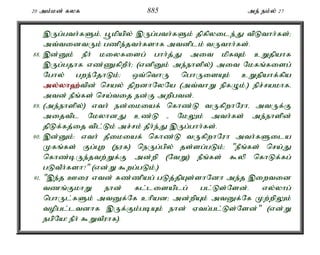 20 அம்மன் கலக 885 அந்நம்ல் 27
இருப்பவர்களும், பூமியில் இருப்பவர்களும் திகிலடைந்து விடுவார்கள்;
அவ்வனைவரும் பணிந்தவர்களாக அவனிடம் வருவார்கள்.
88. இன்னும் நீர் மலைகளைப் பார்த்து அவை மிகவும் உறுதியாக
இருப்பதாக எண்ணுகிறீர்; (எனினும் அந்நாளில்) அவை மேகங்களைப்
போல் பறந்தோடும்; ஒவ்வொரு பொருளையும் உறுதியாக்கிய
அல்லாஹ்வின் செயல் திறனாலேயே (அவ்வாறு நிகழும்.) நிச்சயமாக,
அவன் நீங்கள் செய்வதை நன்கு அறிபவன்.
89. (அந்நாளில்) எவர் நன்மையைக் கொண்டு வருகிறாரோ, அவருக்கு
அதைவிட மேலானது உண்டு - மேலும் அவர்கள் அந்நாளின்
திடுக்கத்தை விட்டும் அச்சம் தீர்ந்து இருப்பார்கள்.
90. இன்னும்: எவர் தீமையைக் கொண்டு வருகிறாரோ அவர்களுடைய
முகங்கள் குப்புற (நரக) நெருப்பில் தள்ளப்படும்; "நீங்கள் செய்து
கொண்டிருந்தவற்றுக்கு அன்றி (வேறு) நீங்கள் கூலி கொடுக்கப்
படுவீர்களா?" (என்று கூறப்படும்.)
91. "இந்த ஊரை எவன் கண்ணியப் படுத்தியுள்ளானோ அந்த இறைவனை
வணங்குமாறு நான் கட்டளையிடப் பட்டுள்ளேன். எல்லாப்
பொருட்களும் அவனுக்கே உரியன; அன்றியும் அவனுக்கே முற்றிலும்
வழிபட்டவனாக இருக்கும்படியும் நான் ஏவப்பட்டுள்ளேன்" (என்று
நபியே! நீர் கூறுவீராக)